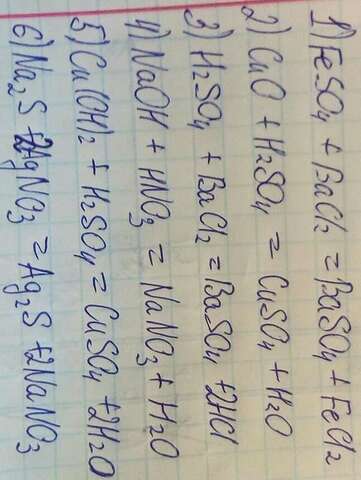 1) FeSO4 + BaCl2 = BaSO4 + FeCl2
2) CuO + H2SO4 = CuSO4 + H2O
3) H2SO4 + BaCl2 = BaSO4 + 2HCl
4) NaOH + HNO3 = NaNO3 + H2O
5) Cu(OH)2 + H2SO4 = CuSO4 + 2H2O
6) Na2S + 2AgNO3 = Ag2S + 2NaNO3